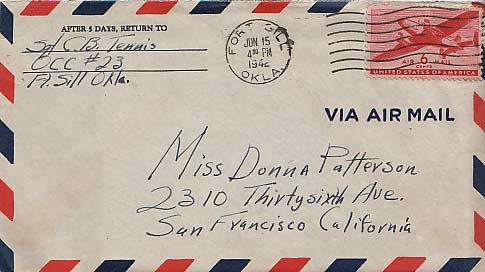 AFTER 5 DAYS, RETURN TO
Sgt C.B. Tennis
OCC #23
Ft. Sill Okla.
FORT SILL
JUN 15
4 30 PM
1942
OKLA.
AIR 6 MAIL
CENTS
UNITED STATES OF AMERICA
VIA AIR MAIL
Miss Donna Patterson
2310 Thirtysixth Ave.
San Francisco California